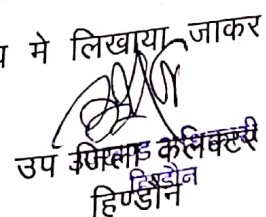 मे लिखाया जाकर
उप जिला कलेक्टर
हिण्डौन
हिण्डौन